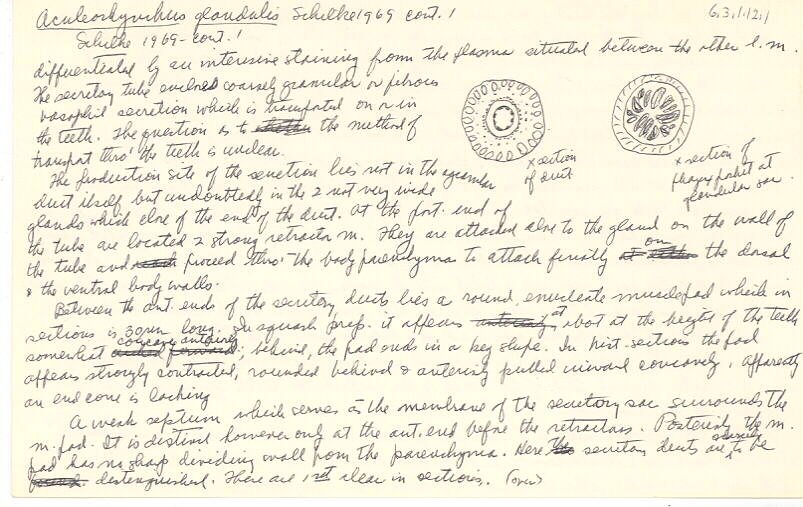 Aculeorhynchus glandulis Schilke 1969 cont. 1
6.3.1.12.1
Schilke 1969 - cont. 1
differentiated by an intensive staining from the plasma situated between the other l.m.
The secretory tube enclosed coarsely granular or fibrous
basophil secretion which is transported on or in
the teeth. The question as to the method of
transport thro' the teeth is unclear.
x section
of duct
x section of
pharynx pocket at
glandular sac.
The production site of the secretion lies not in the agranular
duct itself but undoubtedly in the 2 not very wide
glands which close of the end of the duct. At the post. end of
the tube are located 2 strong retractor m. They are attached close to the gland on the wall of
the tube and proceed thro' the body parenchyma to attach finally on the dorsal
& the ventral body walls.
Between the ant. ends of the secretory ducts lies a round, enucleate muscle pad which in
sections is 30µm long. In squash prep. it appears at abot at the height of the teeth
somewhat concave anteriorly; behind, the pad ends in a keg shape. In hist. sections the pad
appears strongly contracted, rounded behind & anteriorly pulled inward concavely, apparently
an end cone is lacking
A weak septum which serves as the membrane of the secretory sac surrounds the
m. pad. It is distinct however only at the ant. end before the retractors. Posteriorly the m.
pad has no sharp dividing wall from the parenchyma. Here secretory ducts are scarcely to be
distenguished. These are not clear in sections. (over)